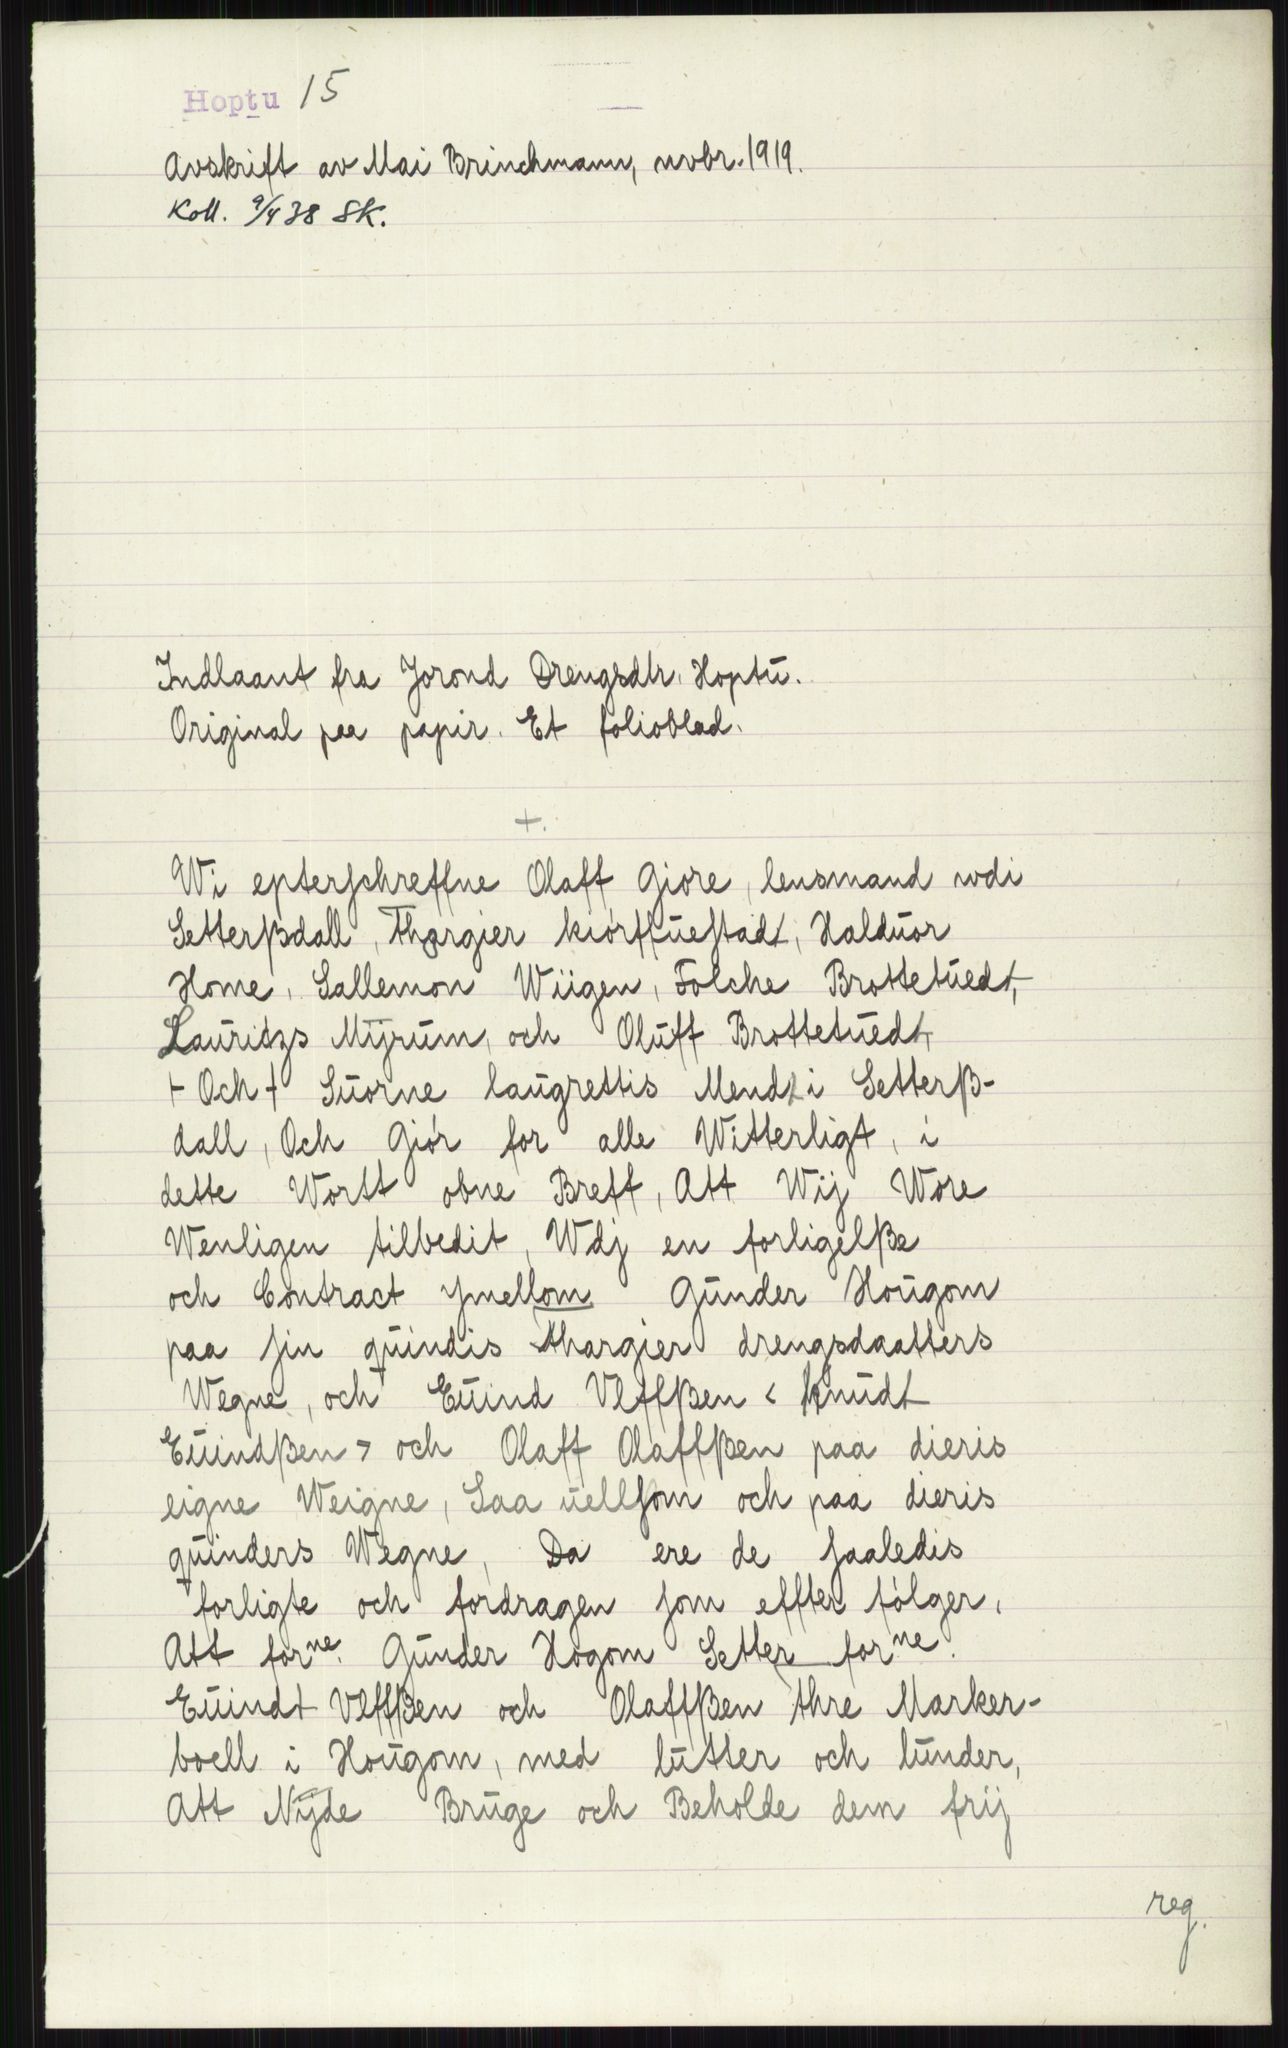 Hoptu 15
Avskrift av Mai Brinchmann, nvbr. 1919.
Koll. 9/4 38 SK.
Indlaant fra Jorond Drengsdtr. Hoptu.
Original paa papir. Et folioblad.
+.
Wi epterschreffne Olaff Giöre, lensmand wdi
Setterßdall, Thorgier kiörffuestadt, Halduor
Home, Sallemon Wiigen, Folche Brottetuedt,
Lauridzs Mÿrum, och Oluff Brottetuedt,
+ Och + Suorne laugrettis Mend i Setterß-
dall, Och Giör for alle Witterligt, i
dette Wortt obne Breff, Att Wij Wore
Wenligen tilbedit, Wdj en forligelße
och Contract ymellom Gunder Hougom
paa sin quindis thargier drengsdaatters
Wegne, och Euind Vlffßen < knudt
Euindßen > och Olaff Olaffßen paa dieris
eigne Weigne, Saa uellsom och paa dieris
quinders Wegne, Da ere de saaledis
forligte och fordragen som effter fölger,
Att forne. Gunder Hogom Setter forne.
Euindt Vlffßen och Olaffßen thre Marker-
boell i Hougom, med lutter och lunder,
Att Nÿde Bruge och Beholde dem frij
reg.